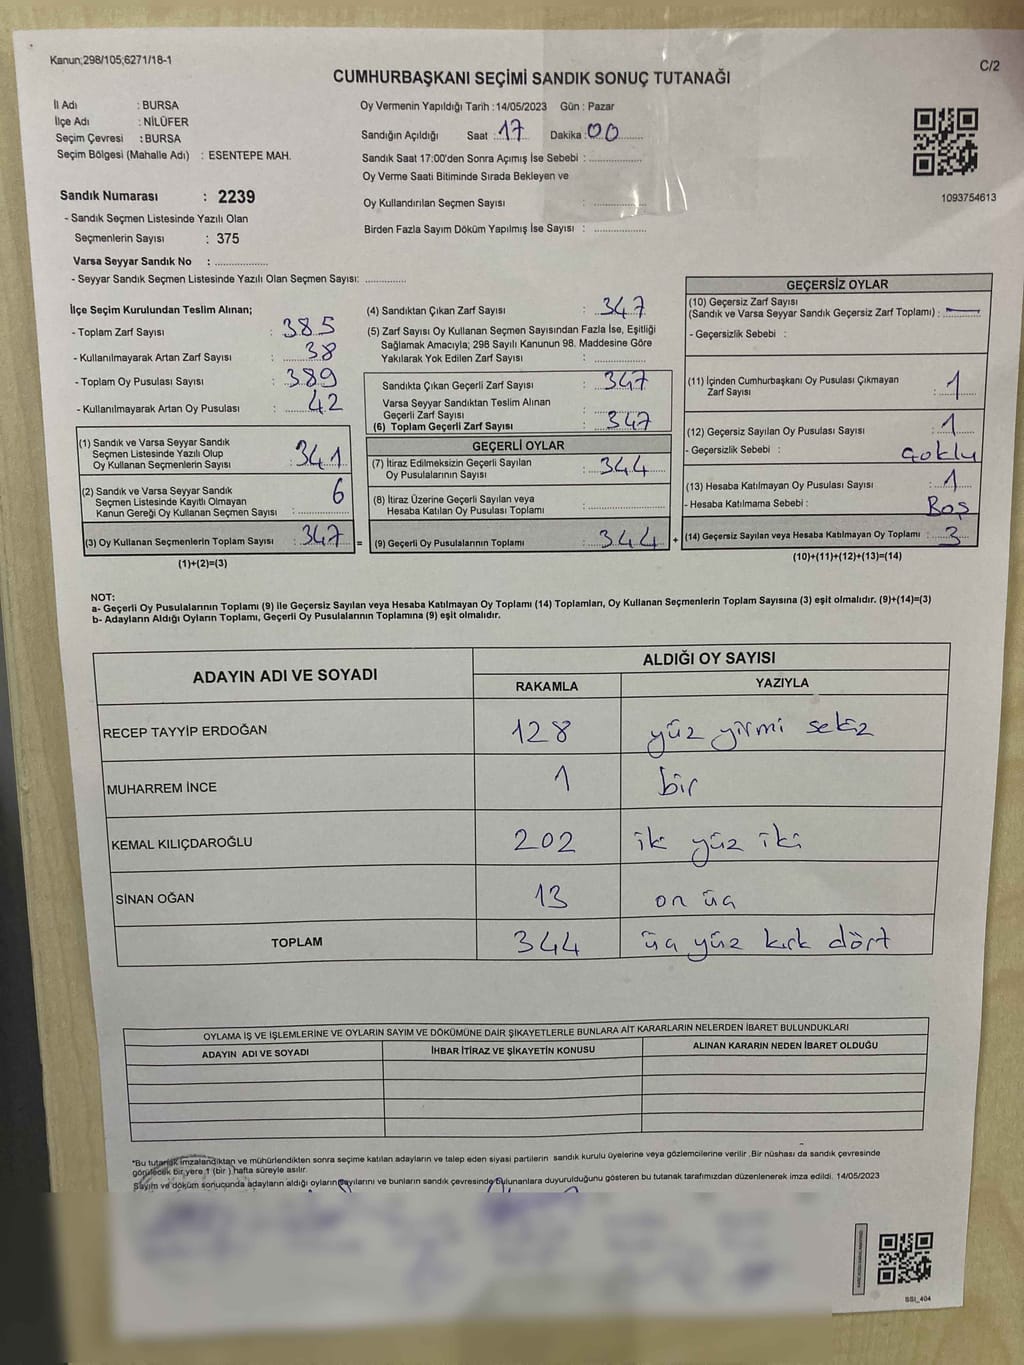 Kanun;298/105;6271/18-1
C/2
CUMHURBAŞKANI SEÇİMİ SANDIK SONUÇ TUTANAĞI
İl Adı : BURSA
İlçe Adı : NİLÜFER
Seçim Çevresi : BURSA
Seçim Bölgesi (Mahalle Adı) : ESENTEPE MAH.
Sandık Numarası : 2239
- Sandık Seçmen Listesinde Yazılı Olan
Seçmenlerin Sayısı : 375
Varsa Seyyar Sandık No : ..................
- Seyyar Sandık Seçmen Listesinde Yazılı Olan Seçmen Sayısı: .............
Oy Vermenin Yapıldığı Tarih : 14/05/2023 Gün : Pazar
Sandığın Açıldığı Saat : 17 Dakika : 00
Sandık Saat 17:00'den Sonra Açımış İse Sebebi : .................
Oy Verme Saati Bitiminde Sırada Bekleyen ve
Oy Kullandırılan Seçmen Sayısı : .................
Birden Fazla Sayım Döküm Yapılmış İse Sayısı : .................
1093754613
İlçe Seçim Kurulundan Teslim Alınan;
- Toplam Zarf Sayısı : 385
- Kullanılmayarak Artan Zarf Sayısı : 38
- Toplam Oy Pusulası Sayısı : 389
- Kullanılmayarak Artan Oy Pusulası : 42
(1) Sandık ve Varsa Seyyar Sandık
Seçmen Listesinde Yazılı Olup
Oy Kullanan Seçmenlerin Sayısı : 341
(2) Sandık ve Varsa Seyyar Sandık
Seçmen Listesinde Kayıtlı Olmayan
Kanun Gereği Oy Kullanan Seçmen Sayısı : 6
(3) Oy Kullanan Seçmenlerin Toplam Sayısı : 347 =
(1)+(2)=(3)
(4) Sandıktan Çıkan Zarf Sayısı : 347
(5) Zarf Sayısı Oy Kullanan Seçmen Sayısından Fazla İse, Eşitliği
Sağlamak Amacıyla; 298 Sayılı Kanunun 98. Maddesine Göre
Yakılarak Yok Edilen Zarf Sayısı : .................
Sandıkta Çıkan Geçerli Zarf Sayısı : 347
Varsa Seyyar Sandıktan Teslim Alınan
Geçerli Zarf Sayısı : .................
(6) Toplam Geçerli Zarf Sayısı : 347
GEÇERLİ OYLAR
(7) İtiraz Edilmeksizin Geçerli Sayılan
Oy Pusulalarının Sayısı : 344
(8) İtiraz Üzerine Geçerli Sayılan veya
Hesaba Katılan Oy Pusulası Toplamı : .................
(9) Geçerli Oy Pusulalarının Toplamı : 344 +
GEÇERSİZ OYLAR
(10) Geçersiz Zarf Sayısı
(Sandık ve Varsa Seyyar Sandık Geçersiz Zarf Toplamı) : —
- Geçersizlik Sebebi :
(11) İçinden Cumhurbaşkanı Oy Pusulası Çıkmayan
Zarf Sayısı : 1
(12) Geçersiz Sayılan Oy Pusulası Sayısı : 1
- Geçersizlik Sebebi : çoklu
(13) Hesaba Katılmayan Oy Pusulası Sayısı : 1
- Hesaba Katılmama Sebebi : Boş
(14) Geçersiz Sayılan veya Hesaba Katılmayan Oy Toplamı : 3
(10)+(11)+(12)+(13)=(14)
NOT:
a- Geçerli Oy Pusulalarının Toplamı (9) ile Geçersiz Sayılan veya Hesaba Katılmayan Oy Toplamı (14) Toplamları, Oy Kullanan Seçmenlerin Toplam Sayısına (3) eşit olmalıdır. (9)+(14)=(3)
b- Adayların Aldığı Oyların Toplamı, Geçerli Oy Pusulalarının Toplamına (9) eşit olmalıdır.
ADAYIN ADI VE SOYADI
ALDIĞI OY SAYISI
RAKAMLA YAZIYLA
RECEP TAYYİP ERDOĞAN 128 yüz yirmi sekiz
MUHARREM İNCE 1 bir
KEMAL KILIÇDAROĞLU 202 iki yüz iki
SİNAN OĞAN 13 on üç
TOPLAM 344 üç yüz kırk dört
OYLAMA İŞ VE İŞLEMLERİNE VE OYLARIN SAYIM VE DÖKÜMÜNE DAİR ŞİKAYETLERLE BUNLARA AİT KARARLARIN NELERDEN İBARET BULUNDUKLARI
ADAYIN ADI VE SOYADI İHBAR İTİRAZ VE ŞİKAYETİN KONUSU ALINAN KARARIN NEDEN İBARET OLDUĞU
*Bu tutanak imzalandıktan ve mühürlendikten sonra seçime katılan adayların ve talep eden siyasi partilerin sandık kurulu üyelerine veya gözlemcilerine verilir .Bir nüshası da sandık çevresinde
görülecek bir yere 1 (bir ) hafta süreyle asılır.
Sayım ve döküm sonucunda adayların aldığı oyların sayılarını ve bunların sandık çevresinde bulunanlara duyurulduğunu gösteren bu tutanak tarafımızdan düzenlenerek imza edildi. 14/05/2023
SSI_404